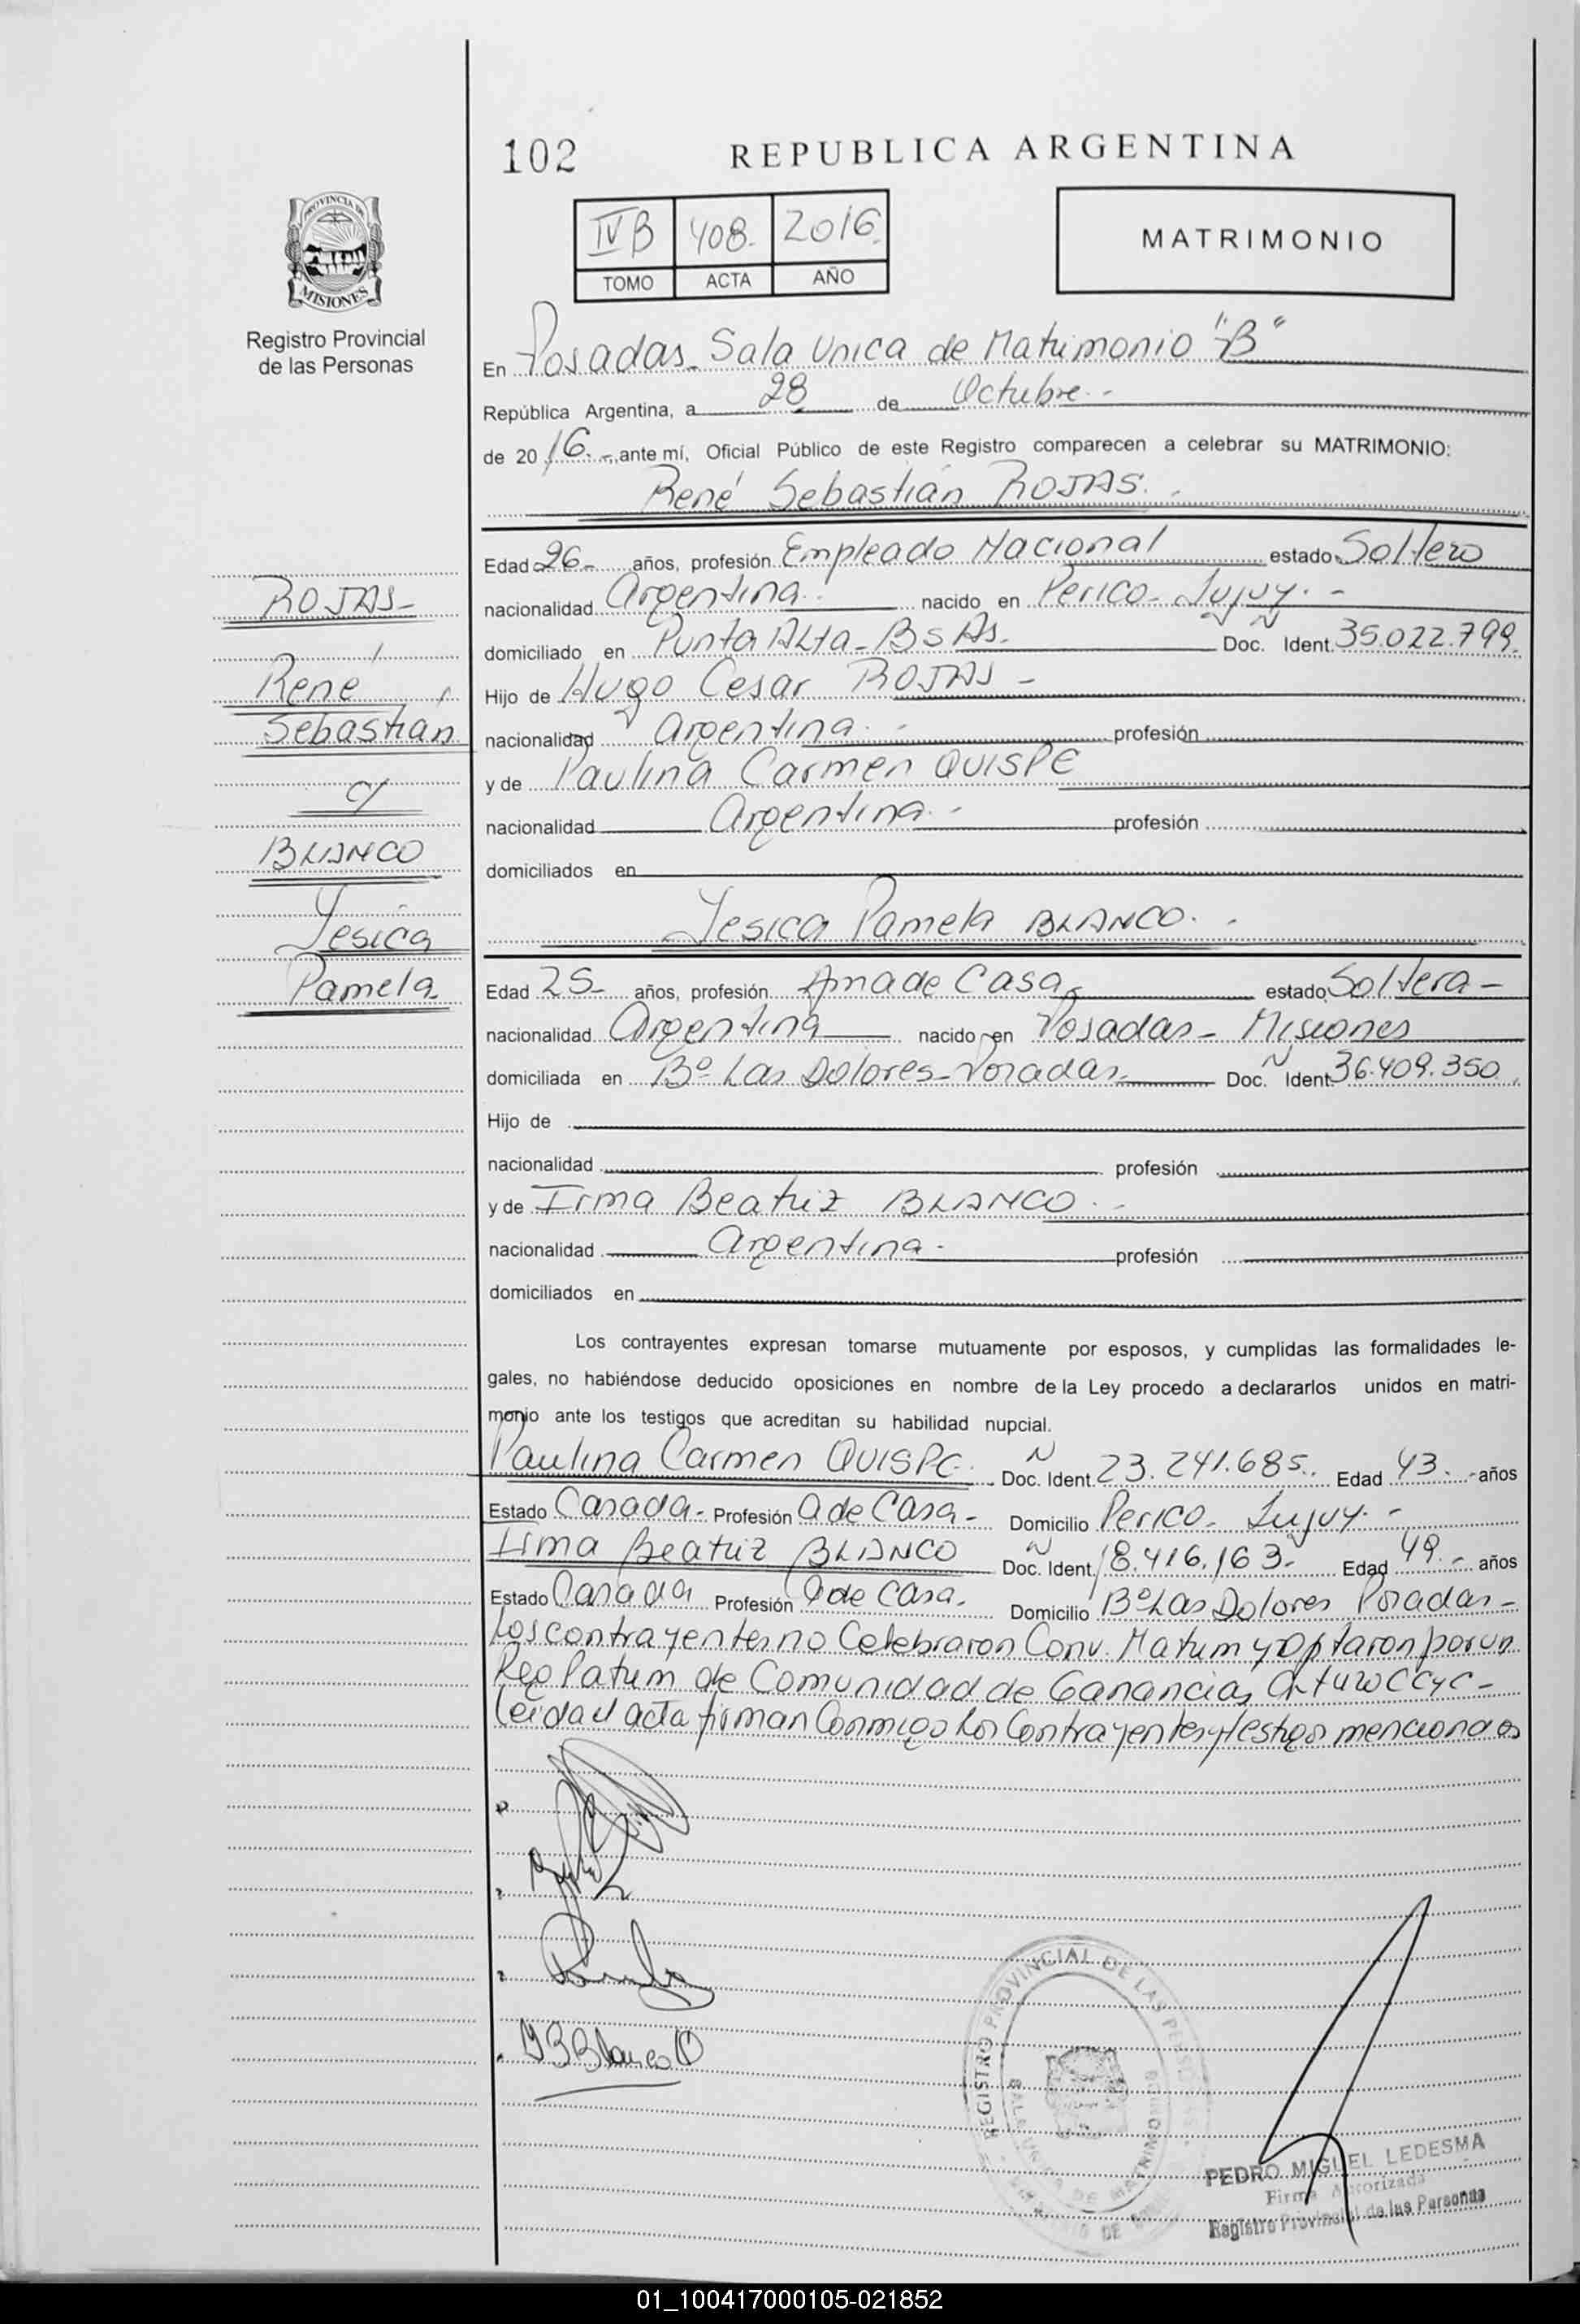 102
REPUBLICA ARGENTINA
PROVINCIA DE
MISIONES
Registro Provincial
de las Personas
IV B 408. 2016.
TOMO ACTA AÑO
MATRIMONIO
En Posadas - Sala Unica de Matrimonio "B"
República Argentina, a 28 de Octubre.-
de 20 16.- ante mí, Oficial Público de este Registro comparecen a celebrar su MATRIMONIO:
René Sebastián ROJAS.-
ROJAS-
René
Sebastián
c/
BLANCO
Yesica
Pamela
Edad 26- años, profesión Empleado Nacional estado Soltero
nacionalidad Argentina.- nacido en Perico - Jujuy.-
domiciliado en Punta Alta - Bs As. Doc. Ident. N 35.022.799.
Hijo de Hugo Cesar ROJAS -
nacionalidad Argentina.- profesión
y de Paulina Carmen QUISPE
nacionalidad Argentina.- profesión
domiciliados en
Yesica Pamela BLANCO.-
Edad 25- años, profesión Ama de Casa- estado Soltera-
nacionalidad Argentina nacido en Posadas - Misiones
domiciliada en Bº Las Dolores - Posadas- Doc. Ident. N 36.409.350
Hijo de
nacionalidad profesión
y de Irma Beatriz BLANCO.-
nacionalidad Argentina- profesión
domiciliados en
Los contrayentes expresan tomarse mutuamente por esposos, y cumplidas las formalidades le-
gales, no habiéndose deducido oposiciones en nombre de la Ley procedo a declararlos unidos en matri-
monio ante los testigos que acreditan su habilidad nupcial.
Paulina Carmen QUISPE. Doc. Ident. N 23.241.685. Edad 43.- años
Estado Casada- Profesión A de Casa- Domicilio Perico - Jujuy.-
Irma Beatriz BLANCO Doc. Ident. N 18.416.163- Edad 49.- años
Estado Casada Profesión A de Casa. Domicilio Bº Las Dolores Posadas-
Los contrayentes no Celebraron Conv. Matrim y Optaron por un
Reg Patrim de Comunidad de Ganancias CCyC-
Leida el acta firman Conmigo los Contrayentes y testigos mencionados
Blanco
REGISTRO PROVINCIAL DE LAS
DE MATRIMONIO
PEDRO MIGUEL LEDESMA
Firma Autorizada
Registro Provincial de las Personas
01_100417000105-021852